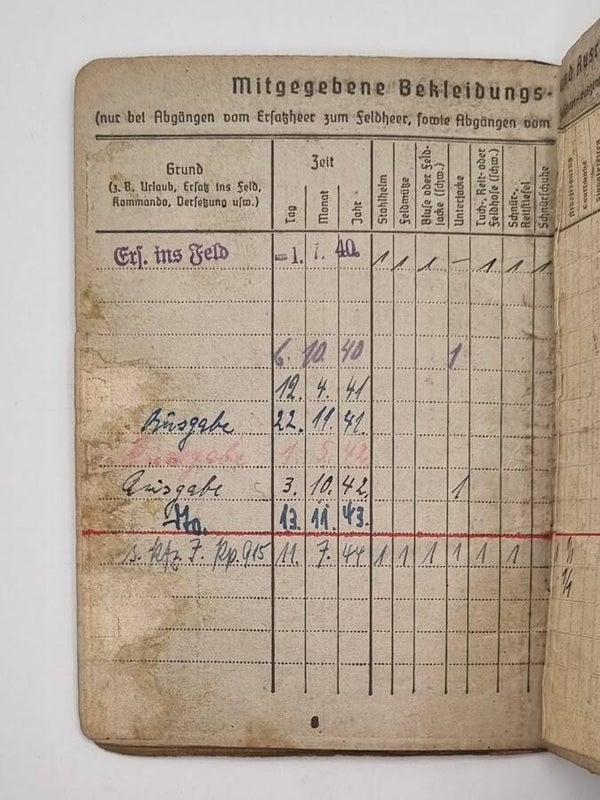 Mitgegebene Bekleidungs-
(nur bei Abgängen vom Ersatzheer zum Feldheer, sowie Abgängen vom
Grund
(z. B. Urlaub, Ersatz ins Feld,
Kommando, Versetzung usw.)
Zeit
Tag
Monat
Jahr
Stahlhelm
Feldmütze
Bluse oder Feld-
jacke (schw.)
Unterjacke
Tuch-, Reit- oder
Feldhose (schw.)
Schnür-,
Reitstiefel
Schnürschuhe
Ers. ins Feld -1. 7. 40. 1 1 1 - 1 1 1
6. 10. 40 1
12. 4. 41
Ausgabe 22. 11. 41.
Ausgabe 1. 5. 42.
Ausgabe 3. 10. 42. 1
13. 11. 43.
7. Kp. 915 11. 7. 44 1 1 1 1 1 1 1